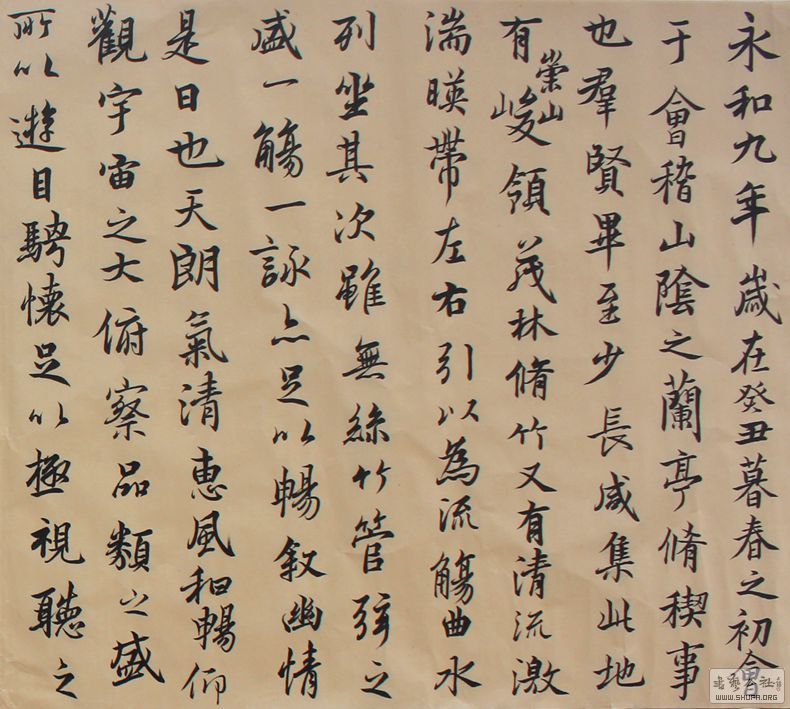 永和九年歲在癸丑暮春之初會
于會稽山陰之蘭亭脩稧事
也羣賢畢至少長咸集此地
有崇山峻領茂林脩竹又有清流激
湍暎帶左右引以為流觴曲水
列坐其次雖無絲竹管弦之
盛一觴一詠亦足以暢敘幽情
是日也天朗氣清惠風和暢仰
觀宇宙之大俯察品類之盛
所以遊目騁懷足以極視聽之
WWW.SHUFA.ORG